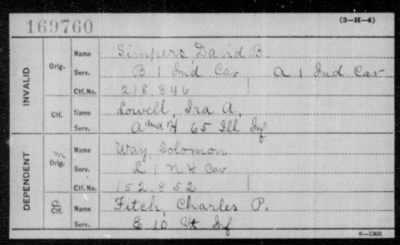 169760
(3-H-4)
INVALID
Orig.
Name Simpers, David B.
Serv. B 1 Ind Cav A 1 Ind Cav
Ctf. No. 218,846
Ctf.
Name Lowell, Ira A.
Serv. A and H 65 Ill Inf
DEPENDENT
m Orig.
Name Way, Solomon
Serv. L 1 N.H. Cav
Ctf. No. 152,852
Ctf.
Name Fitch, Charles P.
Serv. E 10 Vt Inf